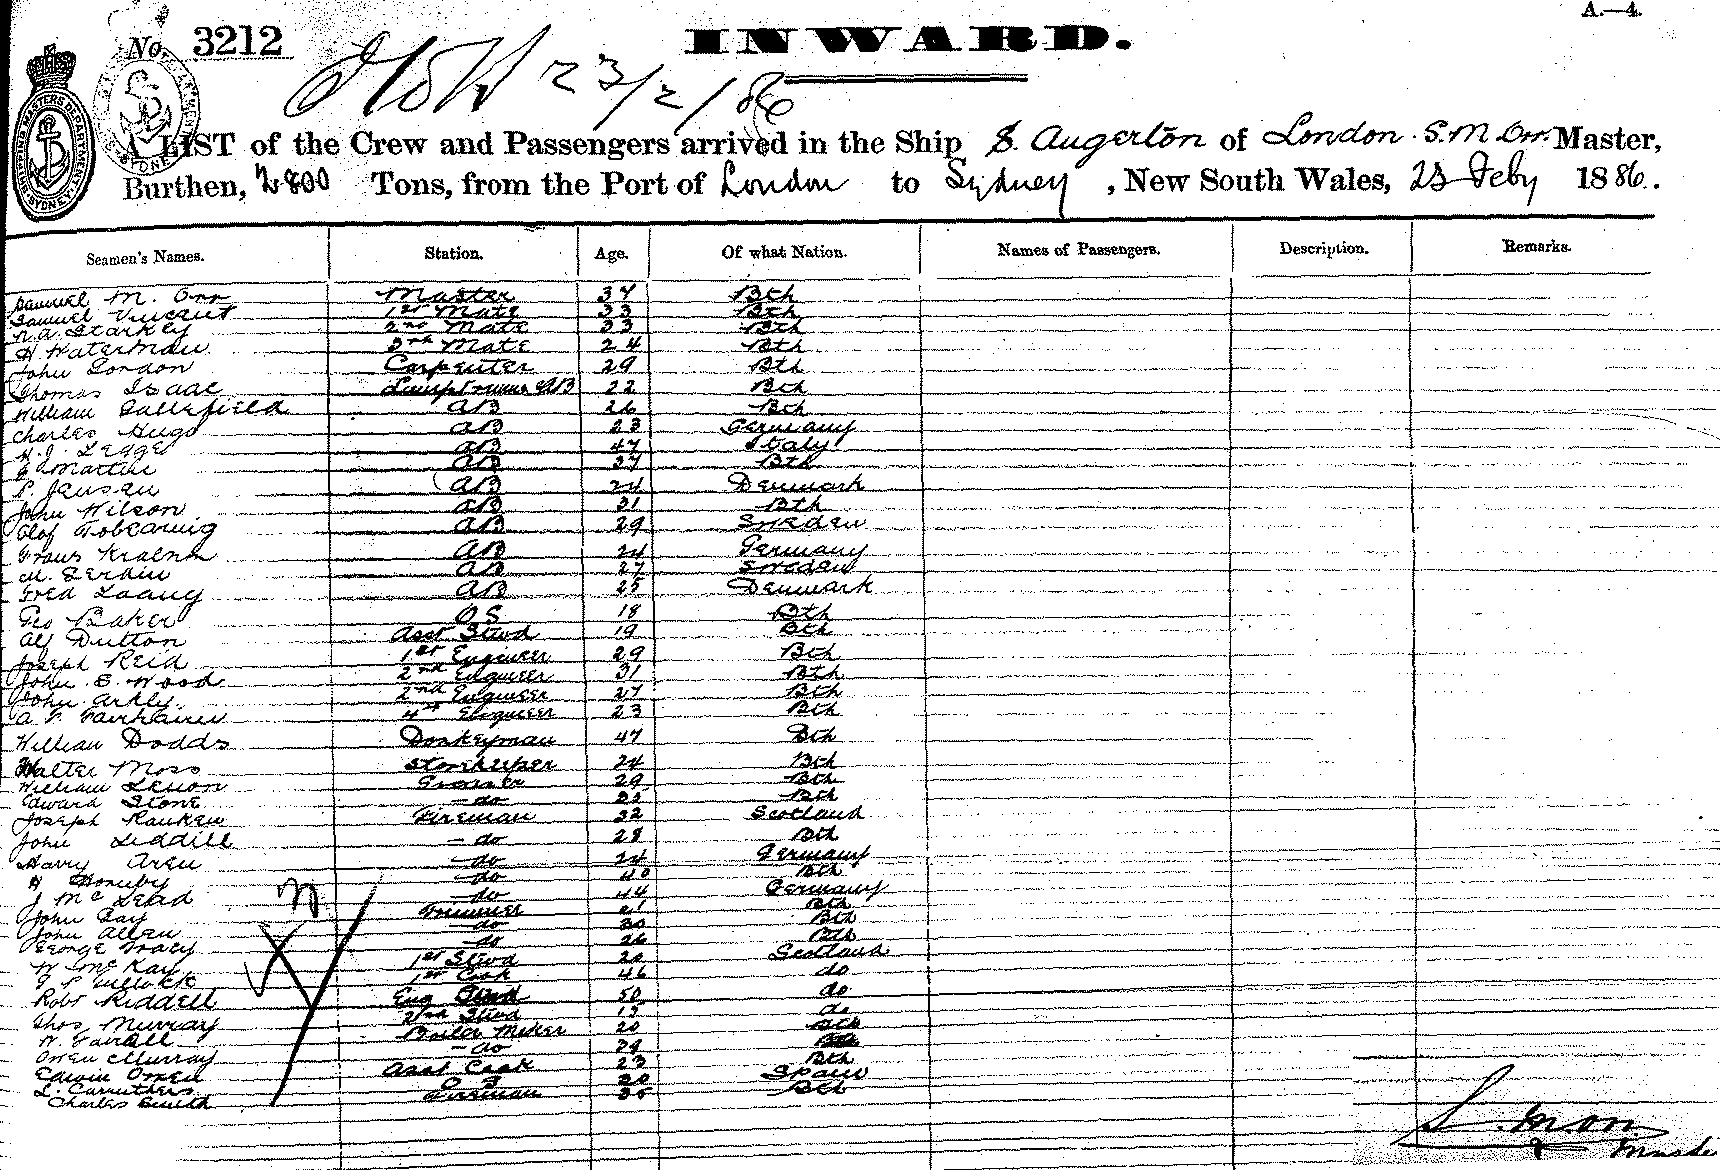 A.—4.
No. 3212
INWARD.
23/2/86
A LIST of the Crew and Passengers arrived in the Ship S. Augerton of London S.M Orr Master,
Burthen, 2800 Tons, from the Port of London to Sydney, New South Wales, 23 Feby 1886.
Seamen's Names. Station. Age. Of what Nation. Names of Passengers. Description. Remarks.
Samuel M. Orr Master 37 Bth
Samuel Vincent 1st Mate 33 Bth
N.A. Starkey 2nd Mate 33 Bth
H Waterman 3rd Mate 24 Bth
John London Carpenter 29 Bth
Thomas Isaac Lamptrimmer AB 22 Bth
William Sallefield AB 26 Bth
Charles Hugo AB 23 Germany
H.J. Legge AB 47 Italy
Martin AB 37 Bth
P. Jensen AB 24 Denmark
John Wilson AB 31 Bth
Olof AB 29 Sweden
Frans AB 24 Germany
M. AB 27 Sweden
Fred Laang AB 25 Denmark
Geo Baker OS 18 Bth
Alf Dutton Asst Stwd 19 Bth
Joseph Reid 1st Engineer 29 Bth
John S. Wood 2nd Engineer 31 Bth
John Arkly. 2nd Engineer 27 Bth
A F Fairbairn 4th Engineer 23 Bth
William Dodds Donkeyman 47 Bth
Walter Moss Storekeeper 24 Bth
William Lenon 29 Bth
Edward Stone do Bth
Joseph Ranken Fireman 32 Scotland
John Liddill do 28 Bth
Harry Aren do 24 Germany
H Hornby do 40 Bth
J McLead do 44 Germany
John Ray Trimmer 21 Bth
John Allen do 30 Bth
George Tracy do 26 Bth
W McKay 1st Stwd 20 Scotland
1st Cook 46 do
Robt Riddell Eng 50 do
Thos Murray 2nd Stwd do
W. Boiler Maker 20 Bth
Owen Murray do 29 Bth
Edwin Owen Asst Cook 23 Bth
L. Carruthers 20 Spain
Charles Smith Fireman 35 Bth